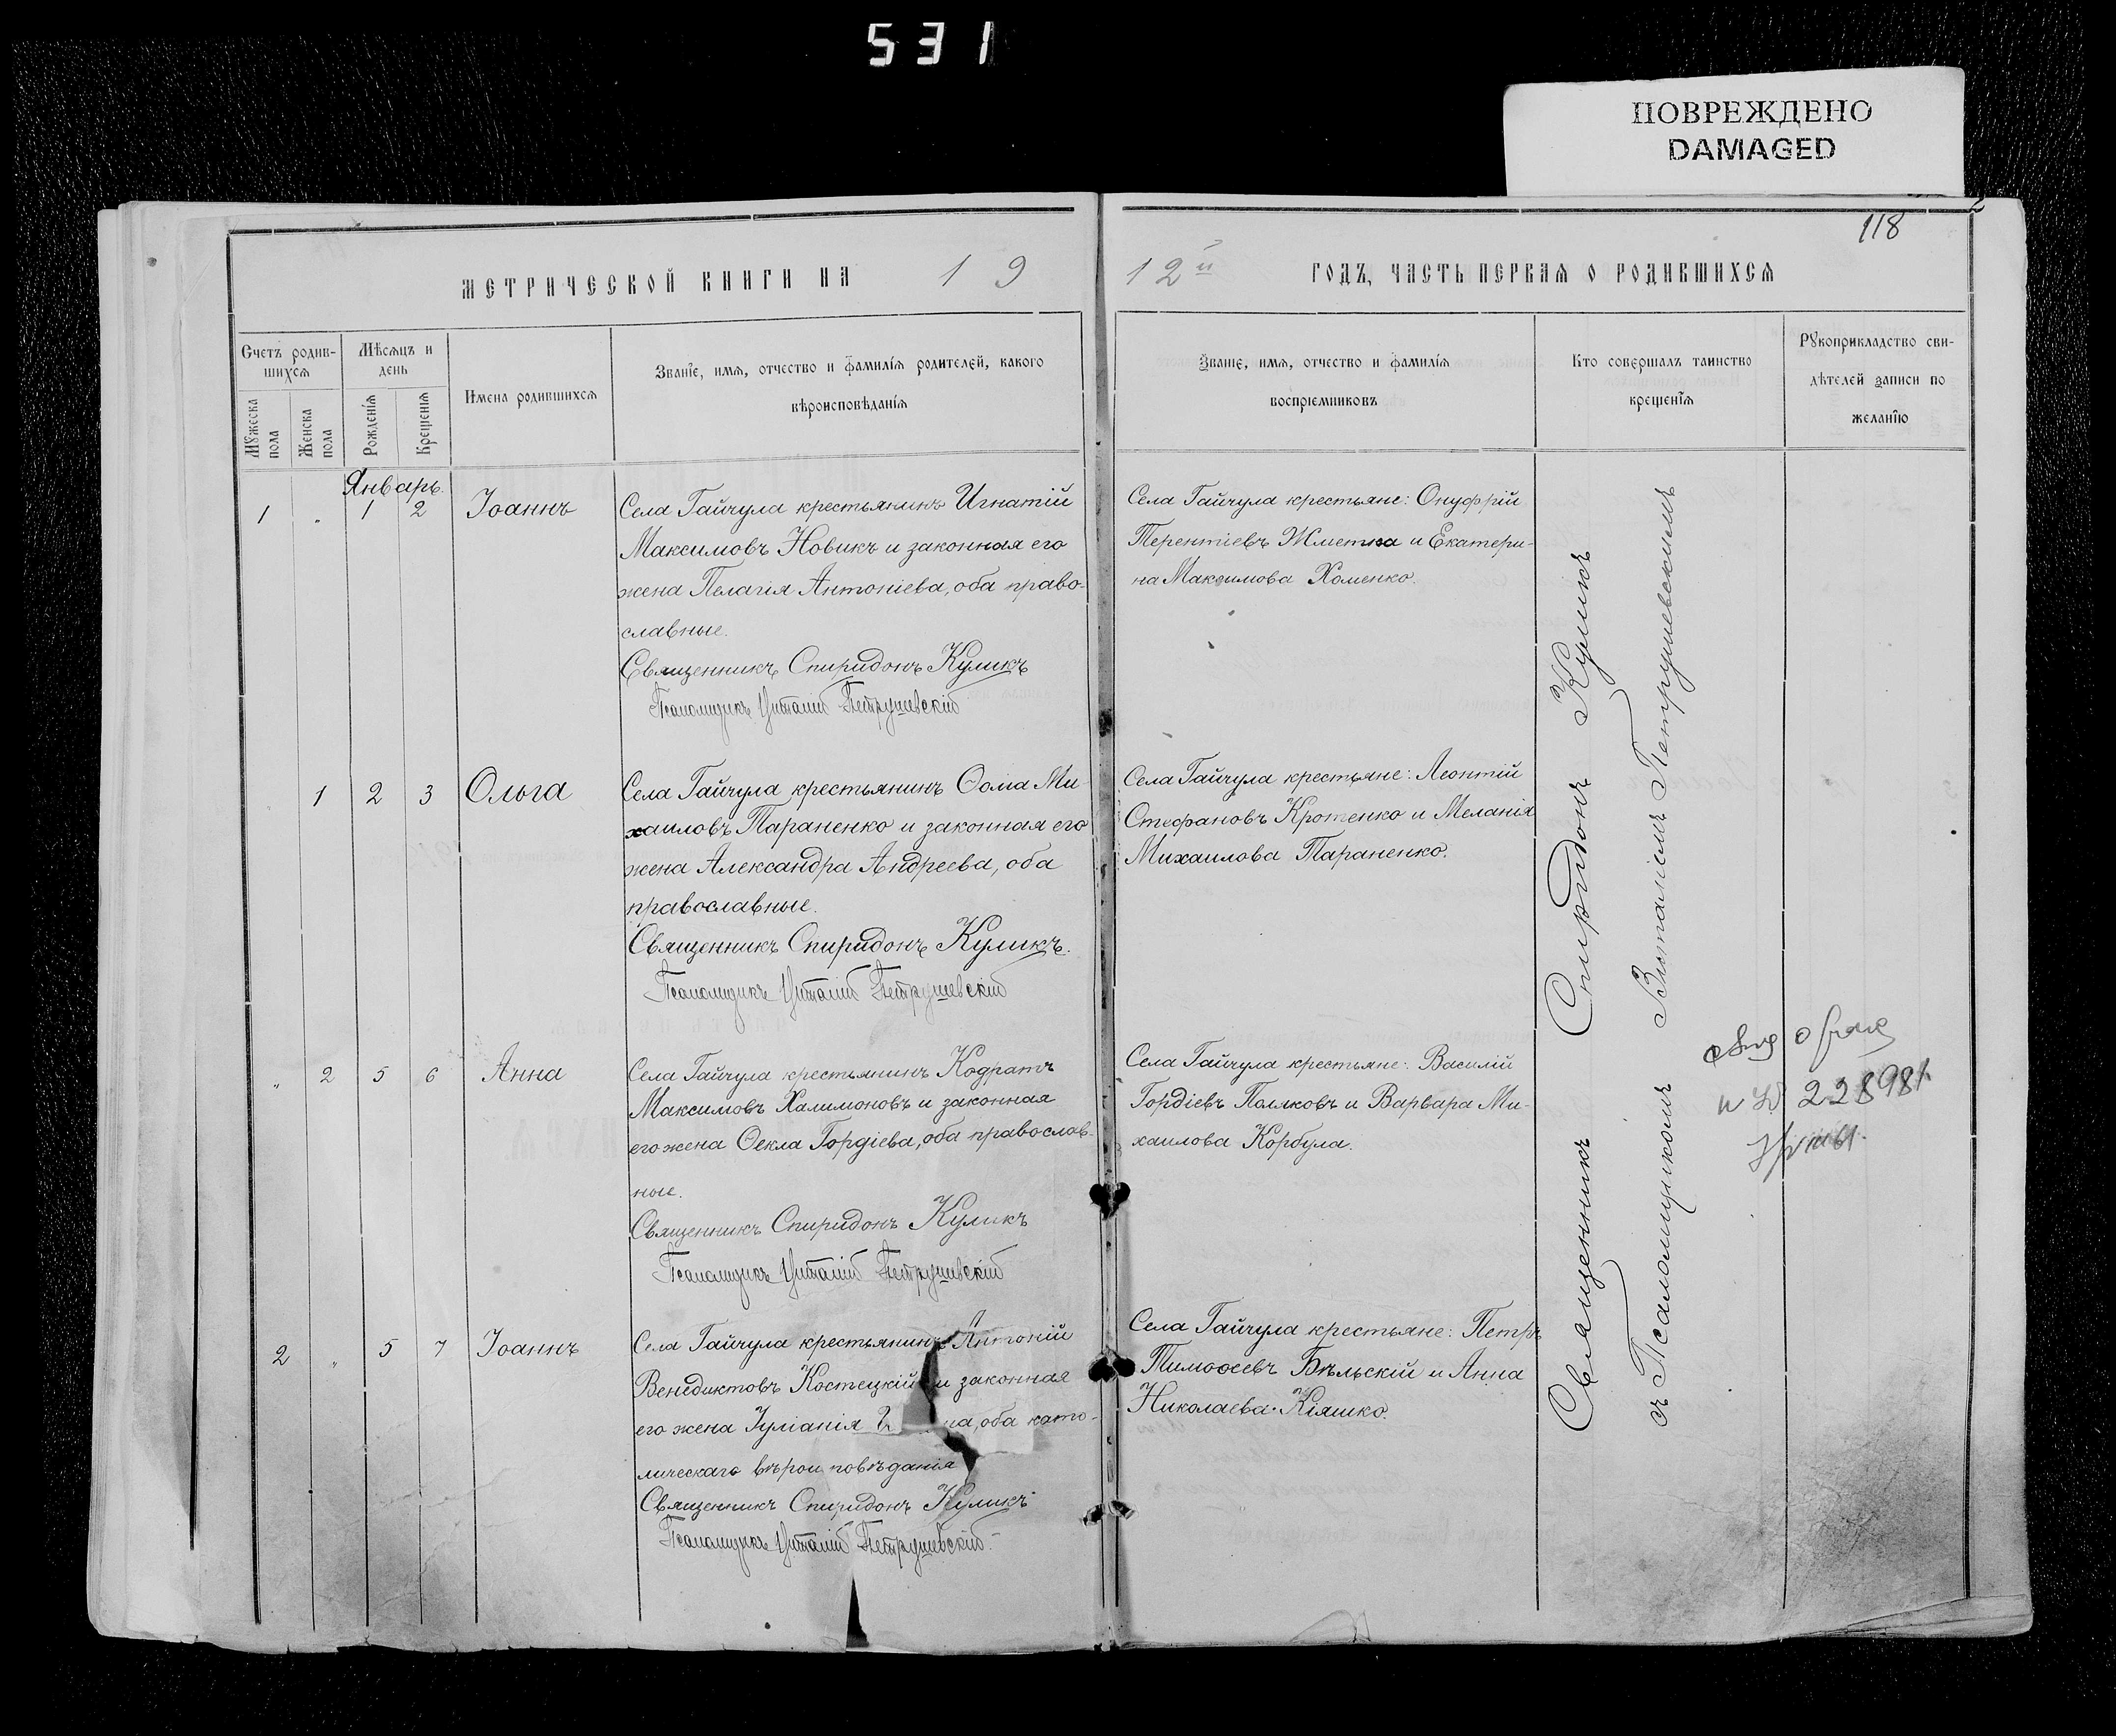 531
ПОВРЕЖДЕНО
DAMAGED
118
МЕТРИЧЕСКОЙ КНИГИ НА 19
12й ГОДЪ, ЧАСТЬ ПЕРВАЯ О РОДИВШИХСЯ
Счетъ родив-
шихся
Мужеска
пола
Женска
пола
Мѣсяцъ и
день
Рожденїя
Крещенїя
Имена родившихся
Званїе, имя, отчество и фамилїя родителей, какого
вѣроисповѣданїя
Званїе, имя, отчество и фамилїя
воспрїемниковъ
Кто совершалъ таинство
крещенїя
Рꙋкоприкладство сви-
дѣтелей записи по
желанїю
Январь.
1 " 1 2 Іоаннъ
Села Гайчула крестьянинъ Игнатій
Максимовъ Новикъ и законная его
жена Пелагія Антоніева, оба право-
славные.
Священникъ Спиридонъ Куликъ
Псаломщикъ Виталій Петрушевскій
Села Гайчула крестьяне: Онуфрій
Терентіевъ Жметка и Екатери-
на Максимова Хоменко.
1 2 3 Ольга
Села Гайчула крестьянинъ Ѳома Ми-
хаиловъ Параненко и законная его
жена Александра Андреева, оба
православные.
Священникъ Спиридонъ Куликъ.
Псаломщикъ Виталій Петрушевскій
Села Гайчула крестьяне: Леонтій
Стефановъ Кротенко и Меланія
Михаилова Параненко.
" 2 5 6 Анна
Села Гайчула крестьянинъ Кодратъ
Максимовъ Халимоновъ и законная
его жена Ѳекла Гордіева, оба православ-
ные.
Священникъ Спиридонъ Куликъ
Псаломщикъ Виталій Петрушевскій
Села Гайчула крестьяне: Василій
Гордіевъ Поляковъ и Варвара Ми-
хаилова Корбула.
2 " 5 7 Іоаннъ
Села Гайчула крестьянинъ Антоній
Венедиктовъ Костецкій и законная
его жена Іуліанія оба като-
лическаго вѣроисповѣданія
Священникъ Спиридонъ Куликъ
Псаломщикъ Виталій Петрушевскій.
Села Гайчула крестьяне: Петръ
Тимоѳеевъ Бѣльскій и Анна
Николаева Кіяшко.
Священникъ Спиридонъ Куликъ
съ Псаломщикомъ Виталіемъ Петрушевскимъ